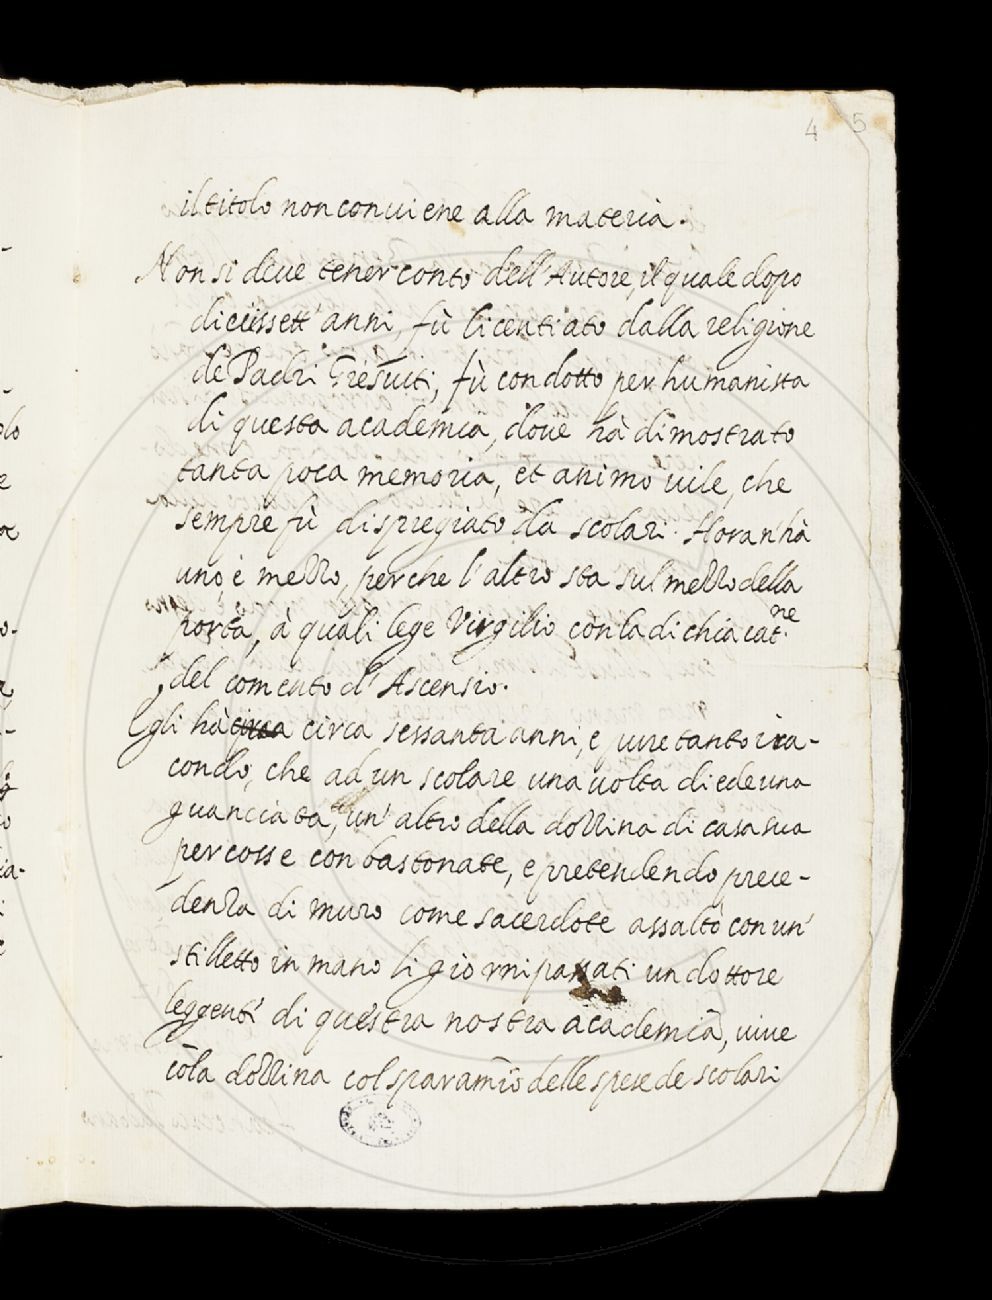 4 5
il titolo non conviene alla materia.
Non si deue tener conto dell'Autore, il quale dopo
diecissett' anni, fù licentiato dalla religione
de Padri Giesuiti, fù condotto per humanista
di questa academia, doue hà dimostrato
tanta poca memoria, et animo uile, che
sempre fù dispregiato da scolari. Hora n'hà
uno e mezzo, perche l'altro sta sul mezzo della
porta, à quali lege Virgilio con la dichiarat.ne
del comento d'Ascensio.
Egli hà circa sessanta anni, e pure tanto ira-
condo, che ad un scolare una uolta diede una
guanciata, un' altro della dozzina di casa sua
percosse con bastonate, e pretendendo prece-
denza di muro come sacerdote assaltò con un'
stilletto in mano li giorni passati un dottore
leggente di questra nostra academia, uiue
cõla dozzina col sparamīo delle spese de scolari